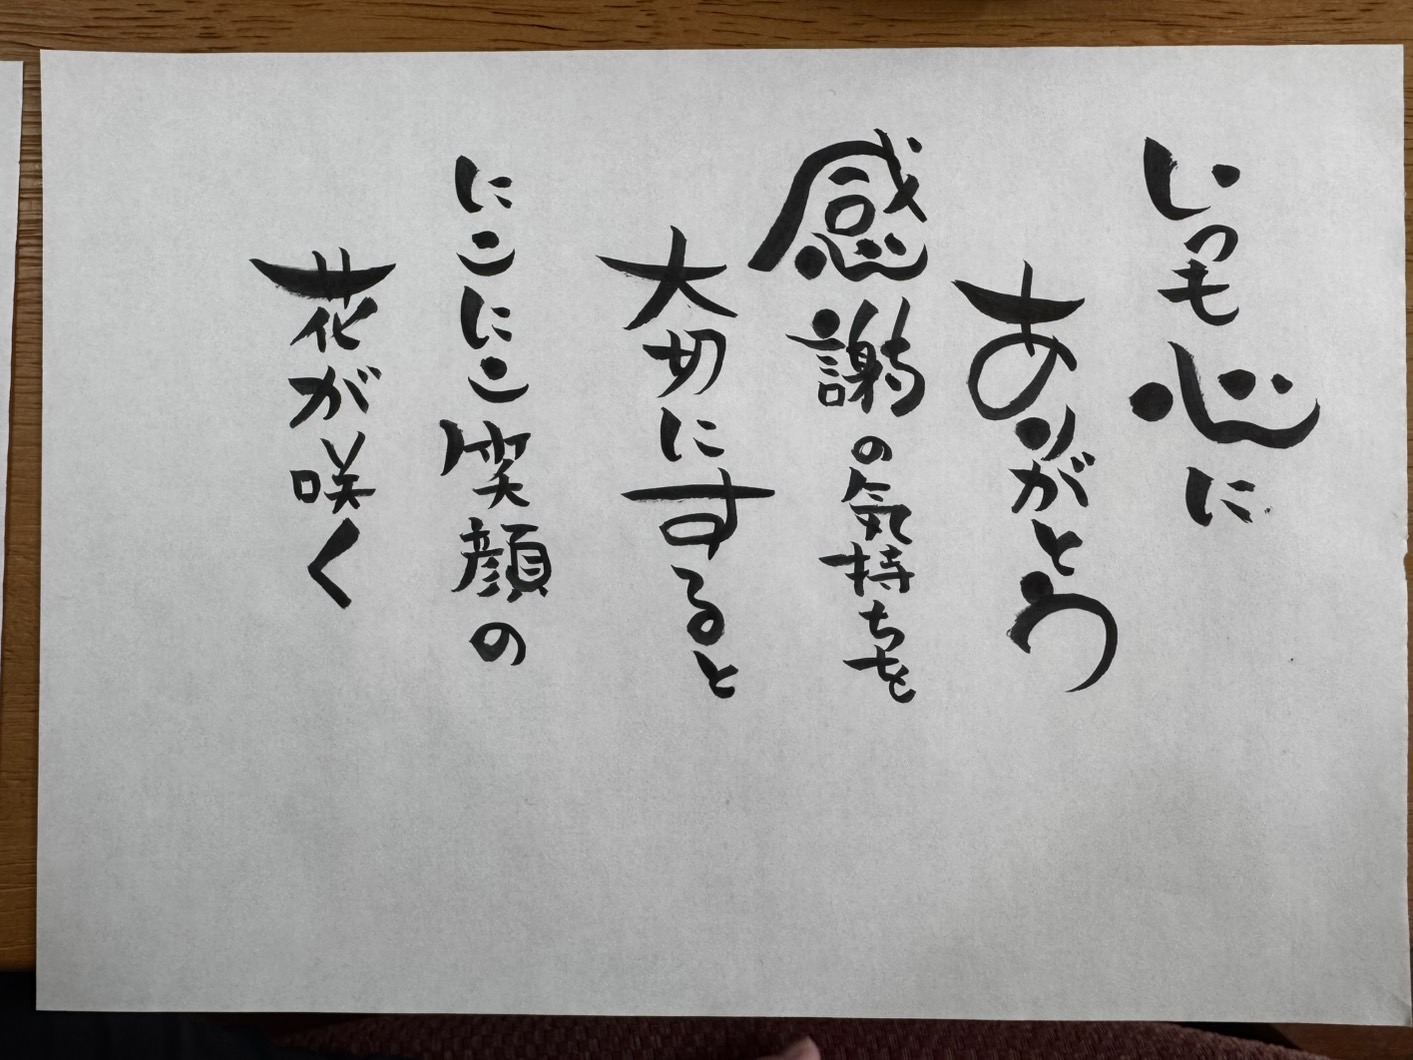 いつも心に
ありがとう
感謝の気持ちを
大切にすると
にこにこ笑顔の
花が咲く